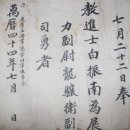 七月二十二日奉
教進士白振南為展
力副尉龍驤衛副
司勇者
萬曆四十四年七月 日